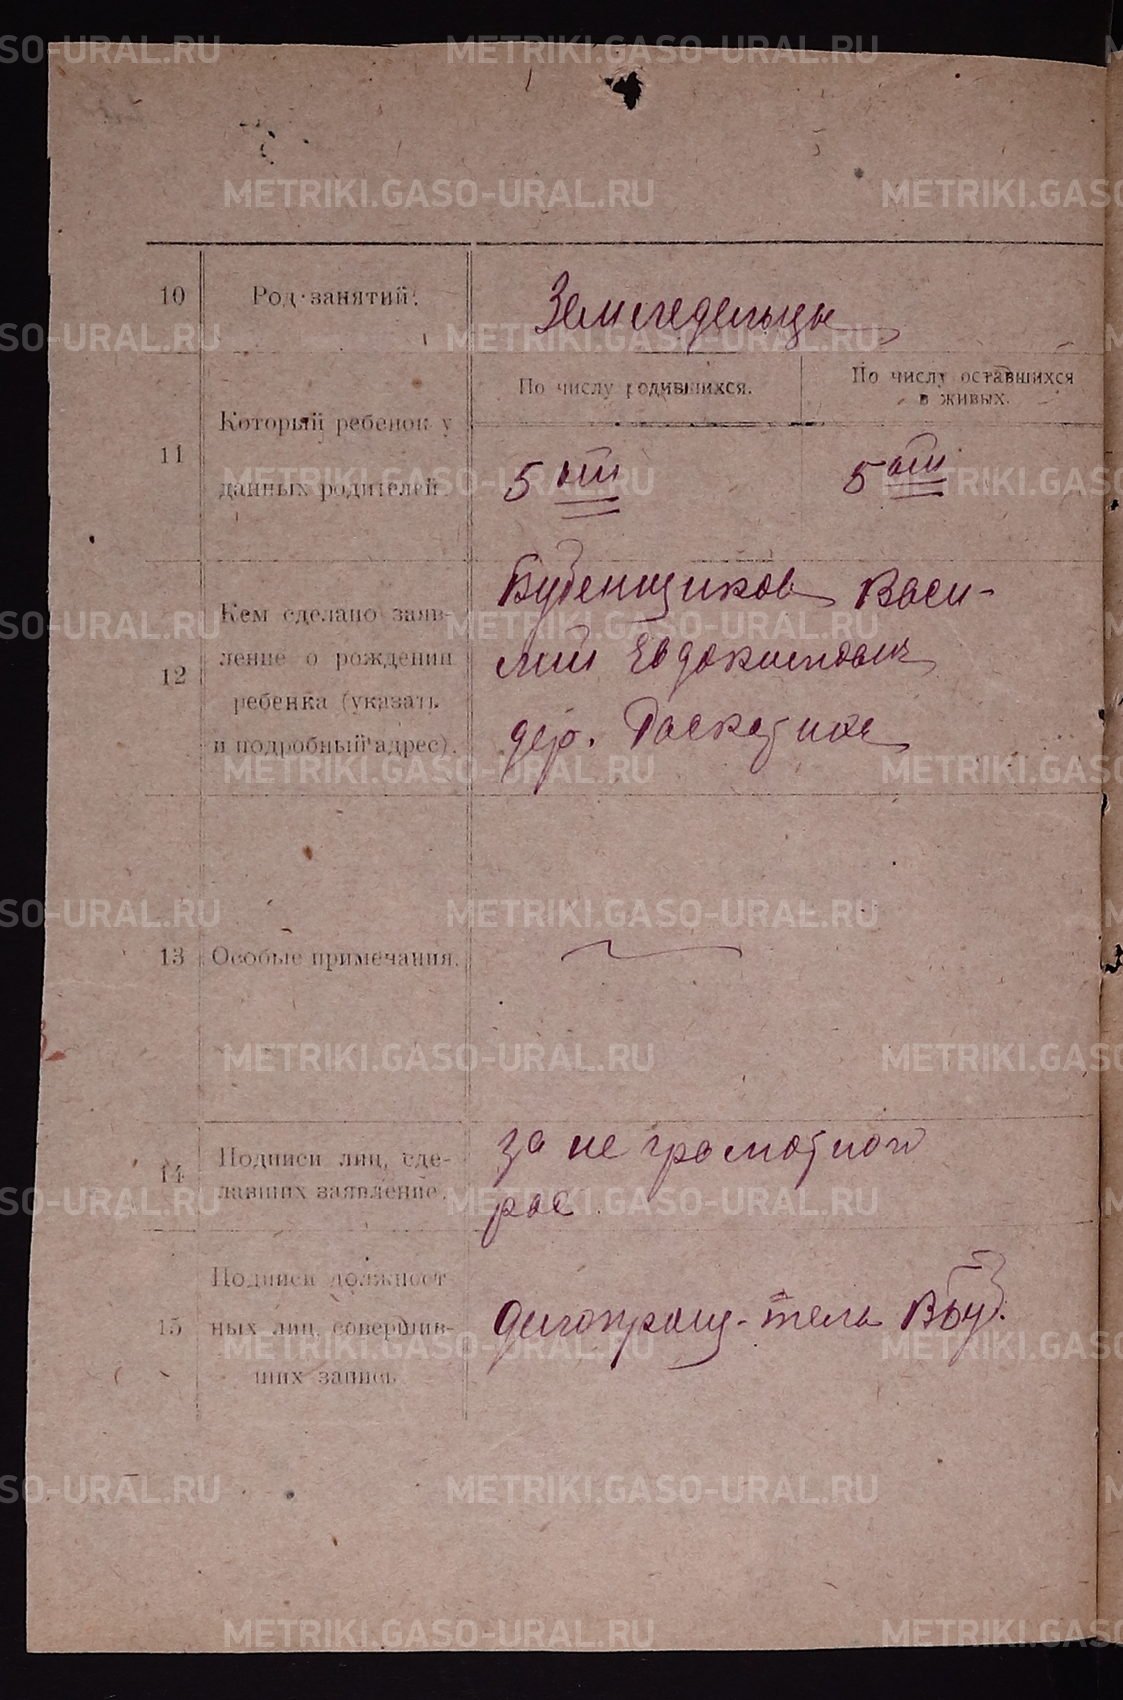 10 Род занятий. Земледельцы
11 Который ребенок у
данных родителей
По числу родившихся.
По числу оставшихся
в живых.
5 ый
5 ый
12 Кем сделано заяв-
ление о рождении
ребенка (указать
и подробный адрес).
Бубенщиков Васи-
лий Евдокимович
дер.
13 Особые примечания.
14 Подписи лиц, сде-
лавших заявление.
за не грамотного
рос
15 Подписи должност
ных лиц, совершив-
ших запись
METRIKI.GASO-URAL.RU